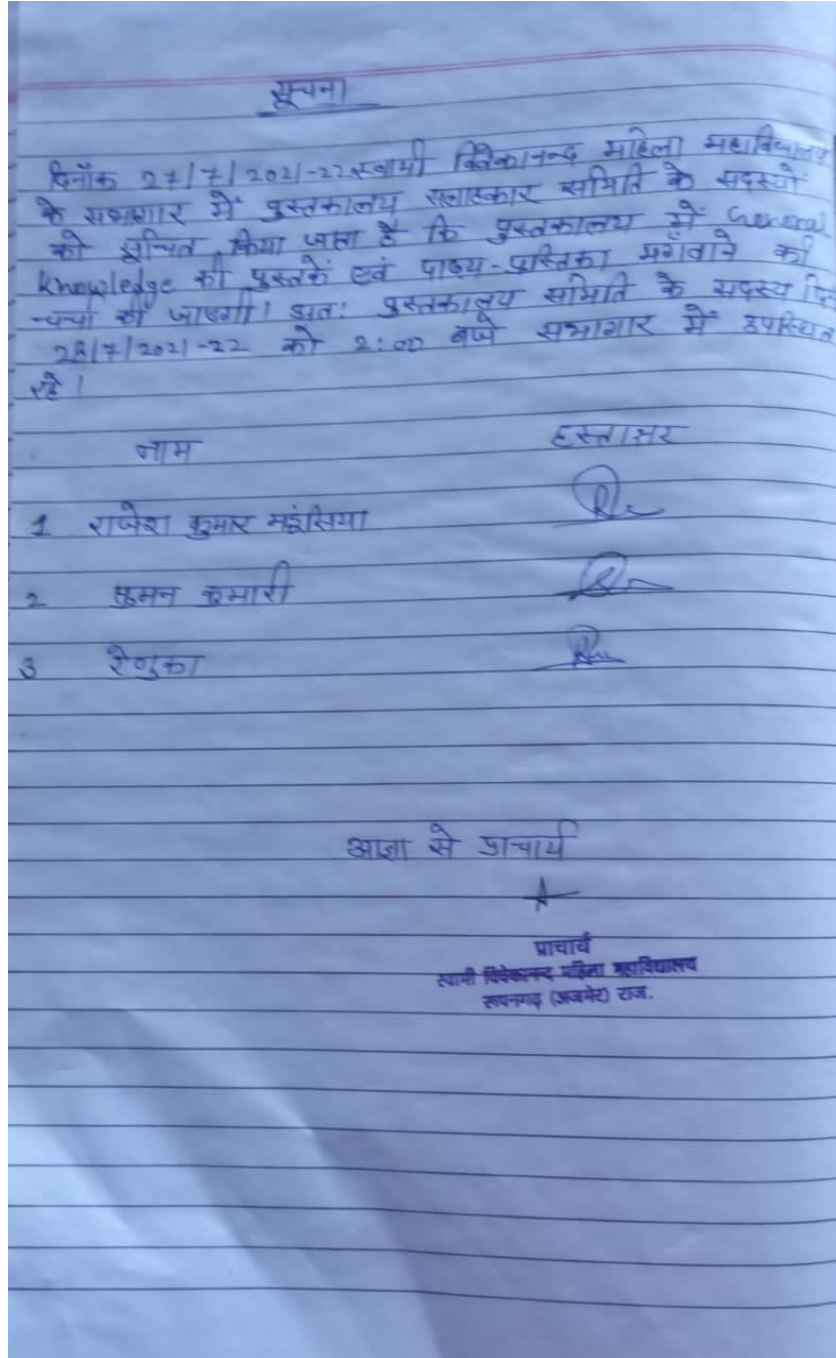 सूचना
दिनाँक 27/7/2021-22 स्वामी विवेकानन्द महिला महाविद्यालय
के सभागार में पुस्तकालय सलाहकार समिति के सदस्यों
को सूचित किया जाता है कि पुस्तकालय में General
Knowledge की पुस्तकें एवं पाठ्य-पुस्तिका मगँवाने की
चर्चा की जाएगी। अतः पुस्तकालय समिति के सदस्य दि
28/7/2021-22 को 2:00 बजे सभागार में उपस्थित
रहे।
नाम हस्ताक्षर
1 राजेश कुमार
2 सुमन कुमारी
3 रेणुका
आज्ञा से प्राचार्य
प्राचार्य
स्वामी विवेकानन्द महिला महाविद्यालय
रूपनगढ़ (अजमेर) राज.